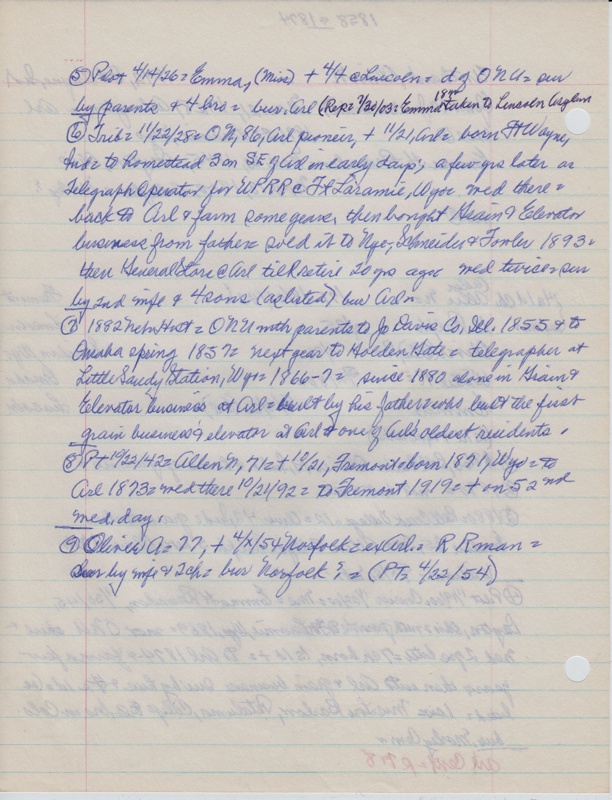 ⑤ Pilot 4/14/26 = Emma, (Miss) + 4/4 @ Lincoln = d of ONU = sur
by parents & 4 bros = bur. Arl (Rep = 7/30/03 = Emma taken to Lincoln Asylum
1890
⑥ Trib = 11/22/28 = ON, 86, Arl pioneer, + 11/21, Arl = born Ft Wayne,
Ind = to homestead 3 on SE of Arl in early days; a few yrs later as
Telegraph Operator for UPRR @ Ft Laramie, Wyo = wed there =
back to Arl & farm some years, then bought Grain & Elevator
business from father = sold it to Nye, Schneider & Fowler 1893 =
then General Store @ Arl till retire 20 yrs ago = wed twice = sur
by 2nd wife & 4 sons (as listed) bur Arl =
⑦ 1882 Nebr Hist = ONU with parents to Jo Davis Co, Ill. 1855 & to
Omaha spring 1857 = next year to Golden Gate = telegrapher at
Little Sandy Station, Wyo = 1866-7 = since 1880 alone in Grain &
Elevator business at Arl = built by his father who built the first
grain business & elevator at Arl & one of Arl's oldest residents.
⑧ Pt 10/22/42 = Allen N, 71 = + 10/21, Fremont = born 1871, Wyo = to
Arl 1873 = wed there 10/21/92 = to Fremont 1919 = + on 52nd
wed. day.
⑨ Oliver A = 77, + 4/x/54 Norfolk = ex Arl = RRman =
Sur by wife & 2ch = bur Norfolk ? = (PT = 4/22/54)